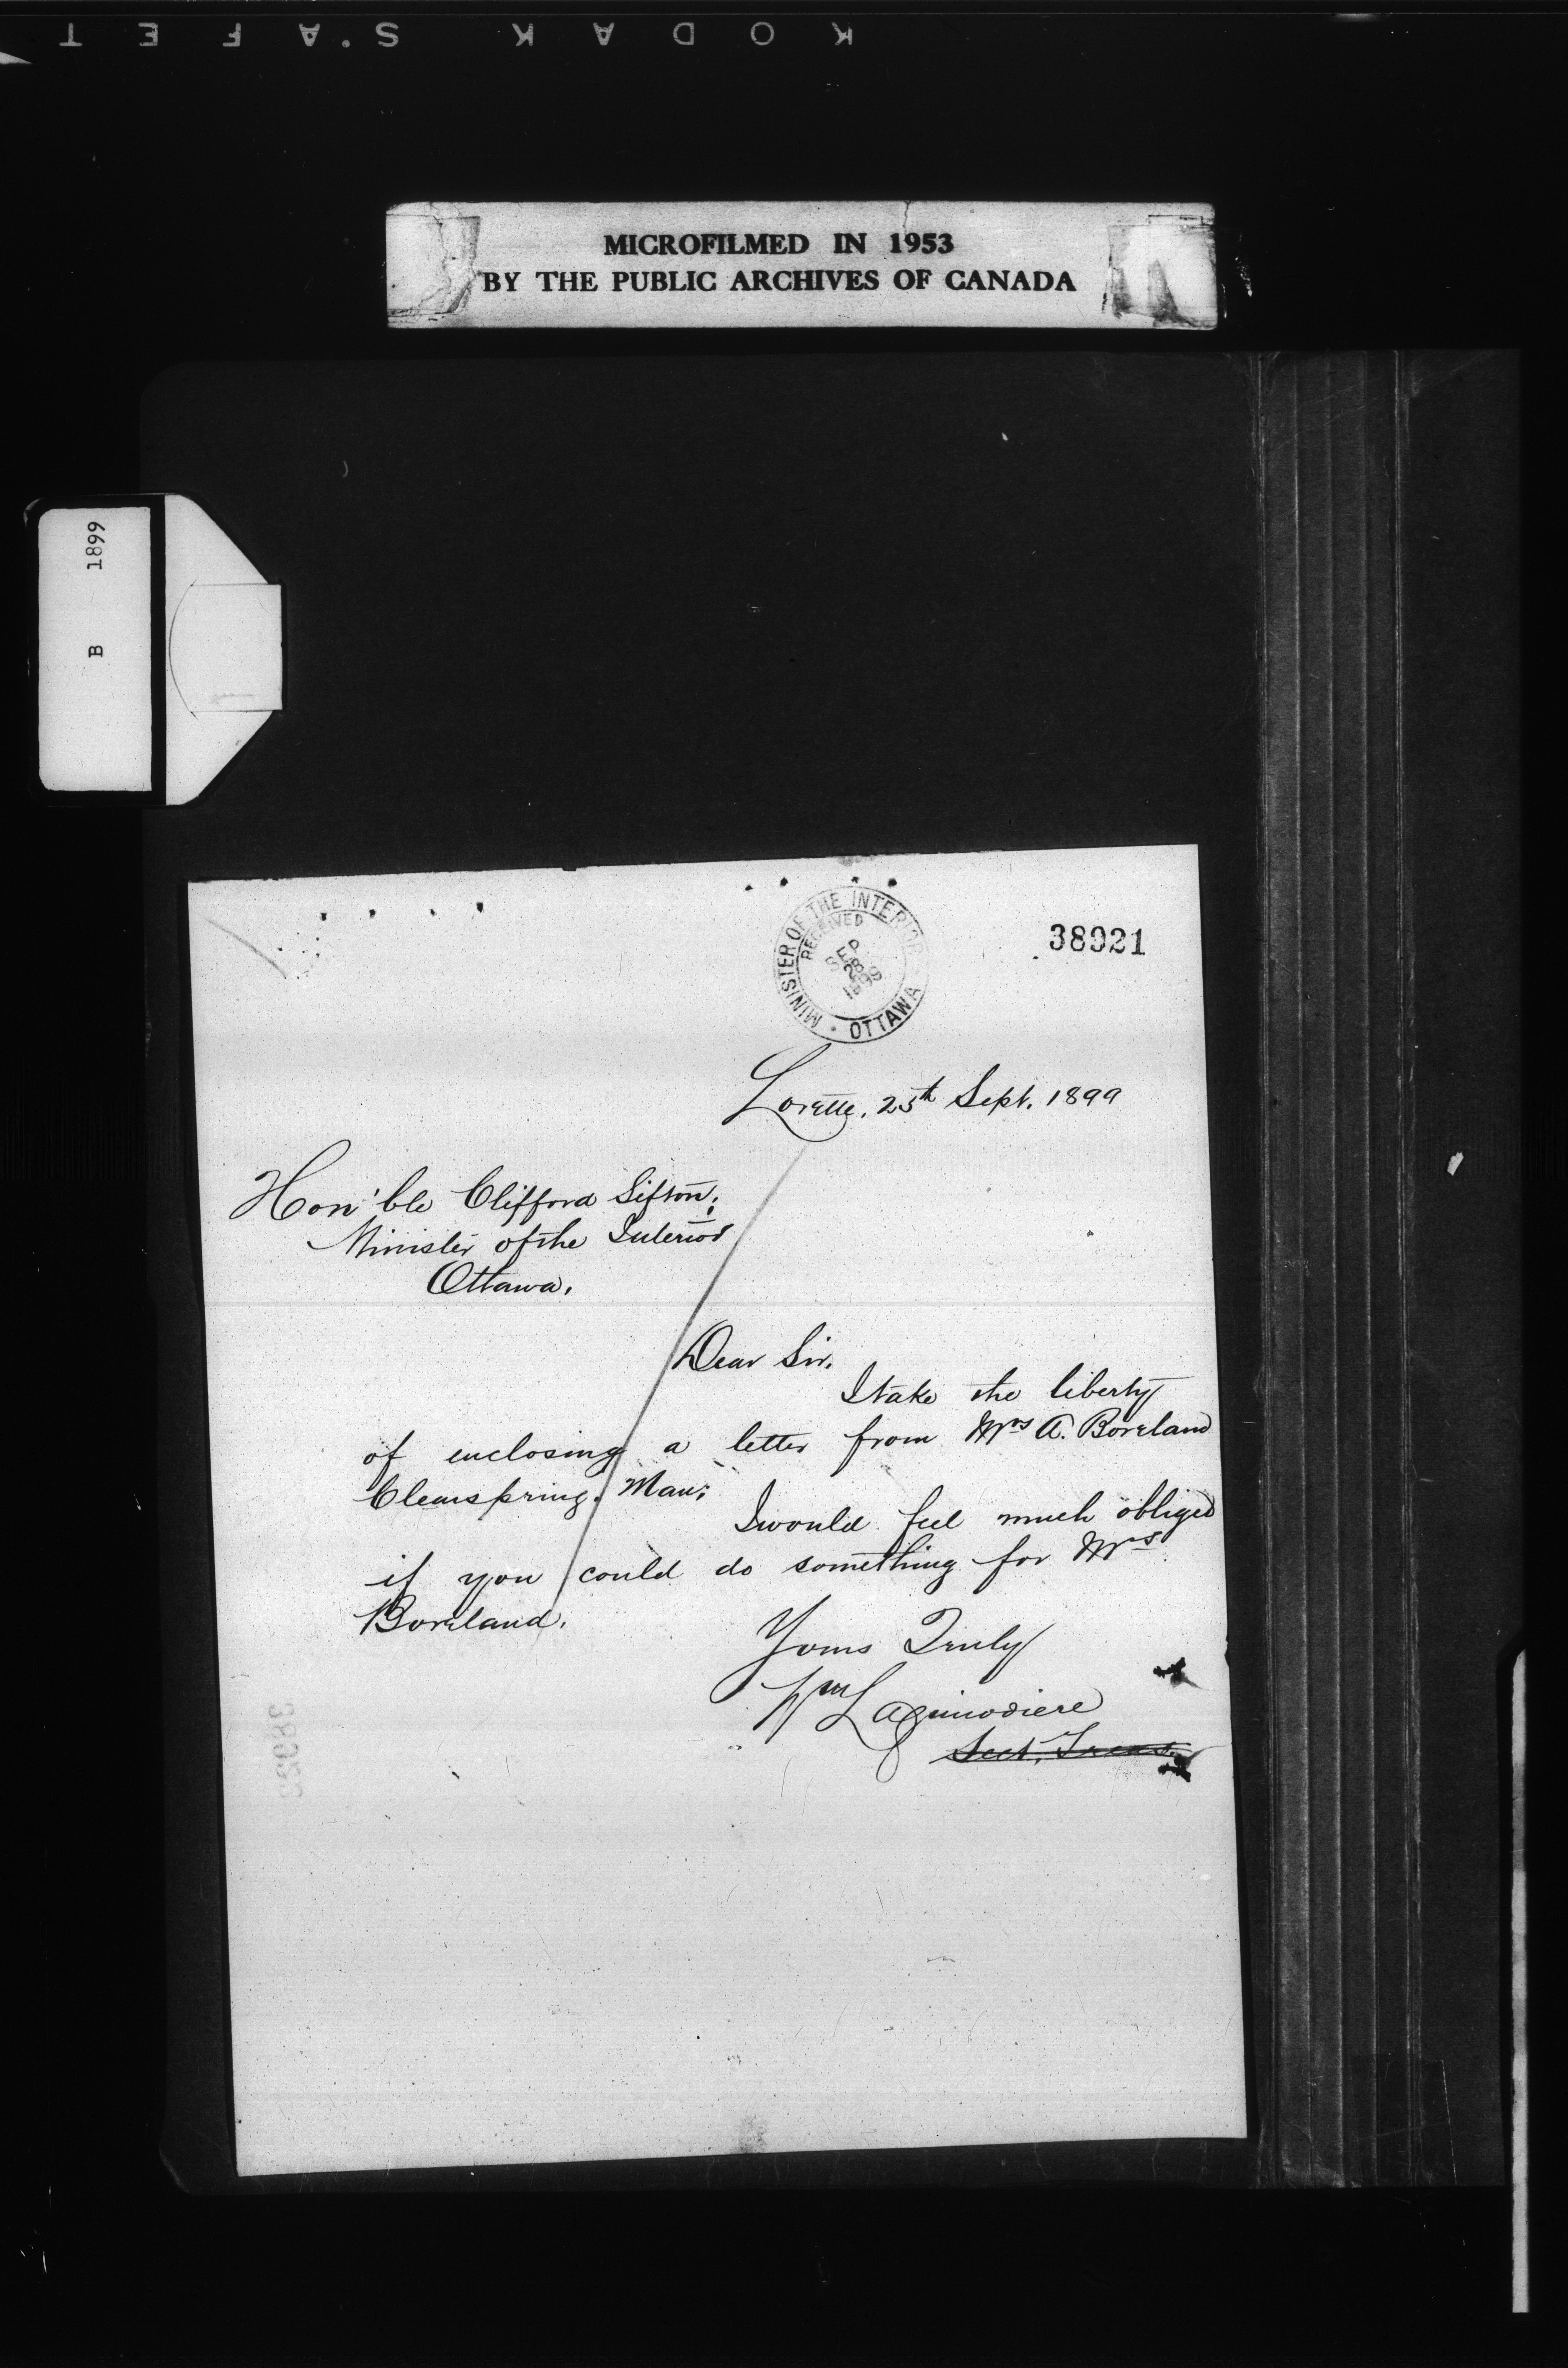 KODAK SAFET
MICROFILMED IN 1953
BY THE PUBLIC ARCHIVES OF CANADA
B 1899
MINISTER OF THE INTERIOR
RECEIVED
SEP
28
1899
OTTAWA
38921
Lorette, 25th Sept. 1899
Hon'ble Clifford Sifton,
Minister of the Interior
Ottawa.
Dear Sir.
I take the liberty
of enclosing a letter from Mrs A. Boreland
Clearspring. Man:
I would feel much obliged
if you could do something for Mrs
Boreland.
Yours Truly
Wm Lagimodiere
Sect. Treas.